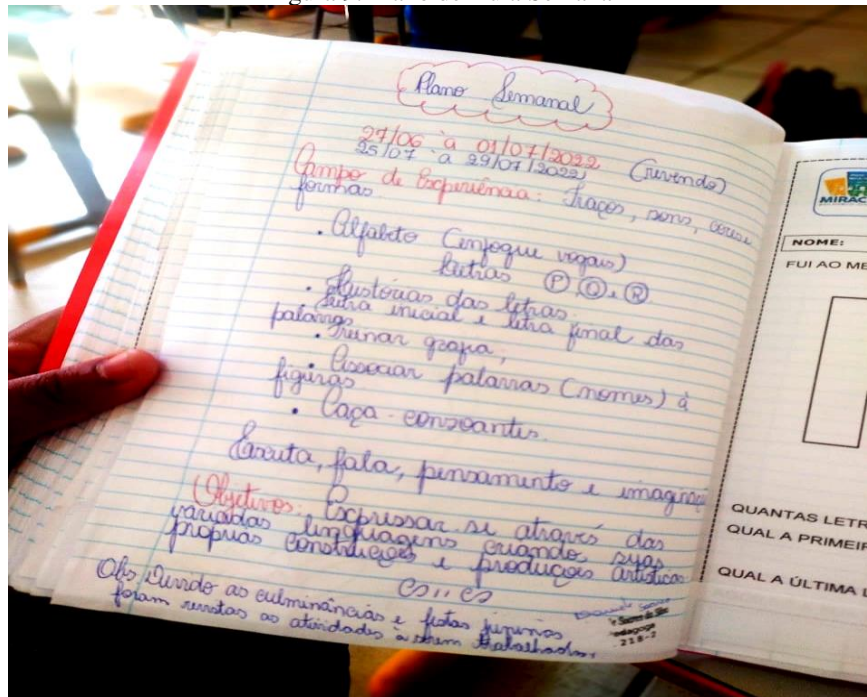 Plano Semanal
27/06 à 01/07/2022
25/07 a 29/07/2022 (revendo)
Campo de Experiência: Traços, sons, cores e
formas.
• Alfabeto (enfoque vogais)
Letras P, Q, R
• Histórias das letras.
Letra inicial e letra final das
palavras
• Treinar grafia,
• Associar palavras (nomes) à
figuras
• Caça-consoantes.
Escuta, fala, pensamento e imaginaç
Objetivos: Expressar se através das
variadas linguagens criando suas
próprias construções e produções artísticas.
Obs. Devido as culminâncias e festas juninas
foram revistas as atividades à serem trabalhadas.
Pedagoga
218-2
MIRAC
NOME:
FUI AO ME
QUANTAS LETR
QUAL A PRIMEIR
QUAL A ÚLTIMA L